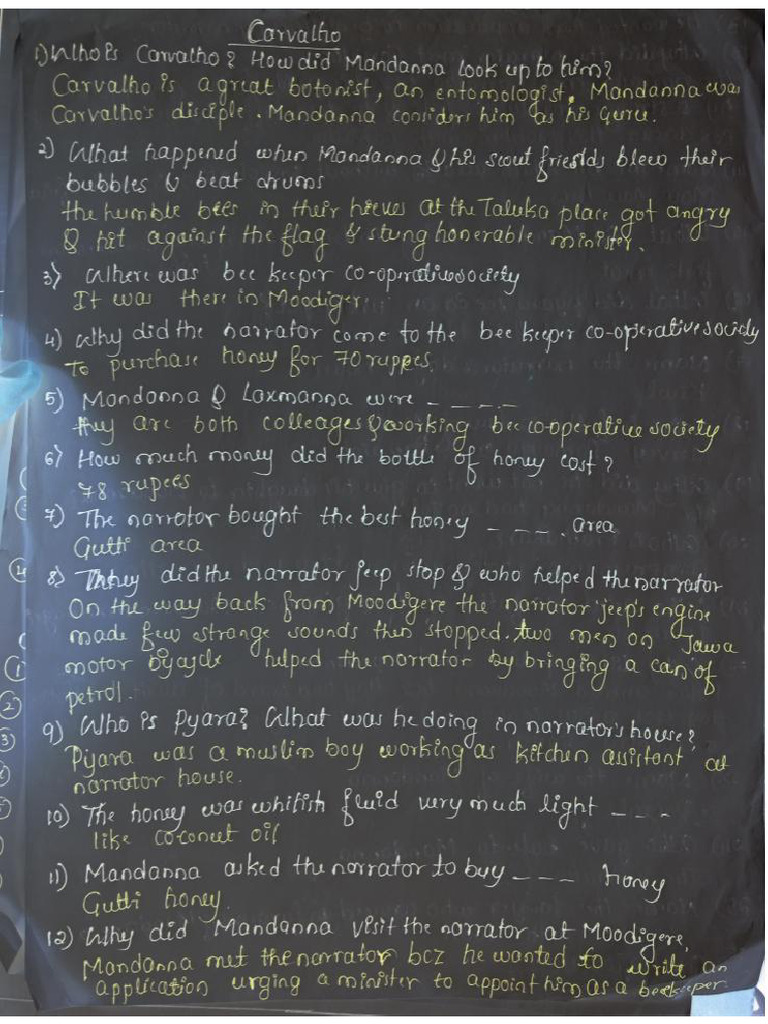 Carvalho
1) Who is Carvalho? How did Mandanna look up to him?
Carvalho is a great botonist, an entomologist, Mandanna was
Carvalho's disciple. Mandanna considers him as his Guru.
2) What happened when Mandanna & his scout friends blew their
bubbles & beat drums
the humble bees in their hieves at the Taluka place got angry
& hit against the flag & stung honerable minister.
3) Where was bee keeper co-operative society
It was there in Moodiger
4) Why did the narrator come to the bee keeper co-operative society
To purchase honey for 70 ruppes.
5) Mandanna & Laxmanna were - - - - -
they are both colleages & working bee co-operative society
6) How much money did the bottle of honey cost?
78 rupees
7) The narrator bought the best honey - - - . area
Gutti area
8) did the narrator jeep stop & who helped the narrator
On the way back from Moodigere the narrator jeep's engine
made few strange sounds then stopped. two men on Jawa
motor bycycle helped the narrator by bringing a can of
petrol.
9) Who is Pyara? What was he doing in narrator's house?
Piyara was a muslim boy working as kitchen assistant at
narrator house.
10) The honey was whitish fluid very much light - - -
like coconut oil
11) Mandanna asked the narrator to buy - - - honey
Gutti honey.
12) Why did Mandanna visit the narrator at Moodigere,
Mandanna met the narrator bcz he wanted to write an
application urging a minister to appoint him as a beekeeper.